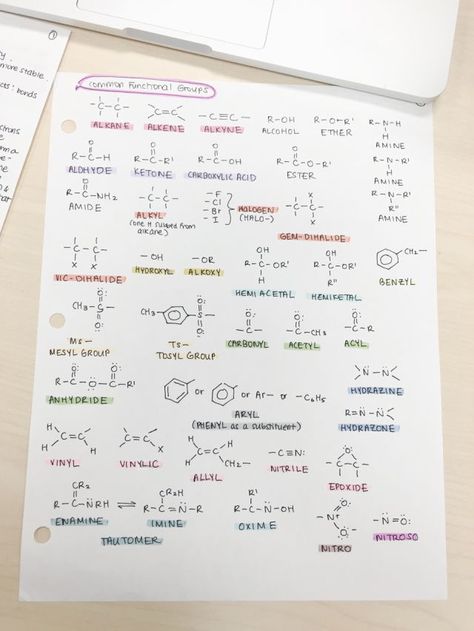 common Functional Groups
ALKANE ALKENE ALKYNE
R-OH
ALCOHOL
R-O-R'
ETHER
R-N-H
H
AMINE
R-C-H
O
ALDHYDE
R-C-R'
O
KETONE
R-C-OH
O
CARBOXYLIC ACID
R-C-O-R'
O
ESTER
R-N-R'
H
AMINE
R-C-NH2
O
AMIDE
ALKYL
(one H subbed from
alkane)
-F
-Cl
-Br
-I
HALOGEN
(HALO-)
GEM-DIHALIDE
R-N-R'
R"
AMINE
VIC-DIHALIDE
-OH
HYDROXYL
-OR
ALKOXY
OH
R-C-OR'
H
HEMIACETAL
OH
R-C-OR'
R"
HEMIKETAL
CH2-
BENZYL
CH3-S-
Ms-
MESYL GROUP
CH3-
Ts-
TOSYL GROUP
CARBONYL
CH3
ACETYL
ACYL
R-C-O-C-R'
ANHYDRIDE
or
or Ar- or -C6H5
ARYL
(PHENYL as a substituent)
HYDRAZINE
R=N-N
HYDRAZONE
VINYL
VINYLIC
ALLYL
-C≡N:
NITRILE
EPOXIDE
CR2
R-C-NRH
ENAMINE
CR2H
R-C=N-R
IMINE
TAUTOMER
R'
R-C=N-OH
OXIME
NITRO
-N=O:
NITROSO
more stable
bonds